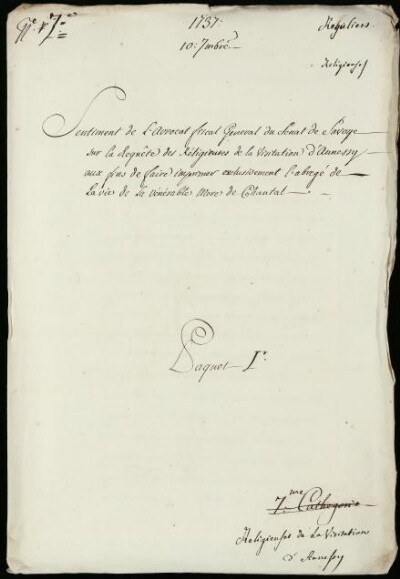 1737.
10: 7mbre
Reguliers.
Religieuses
Sentiment de L'Avocat fiscal General du Senat de Savoye
sur la Requête des Réligieuses de la Visitation d'Annessy
aux fins de faire imprimer exclusivement l'abregé de
La vie de la Vénérable Mere de Chantal
Paquet I.r
7.me Cathegorie
Religieuses de La Visitation
d'Annessy